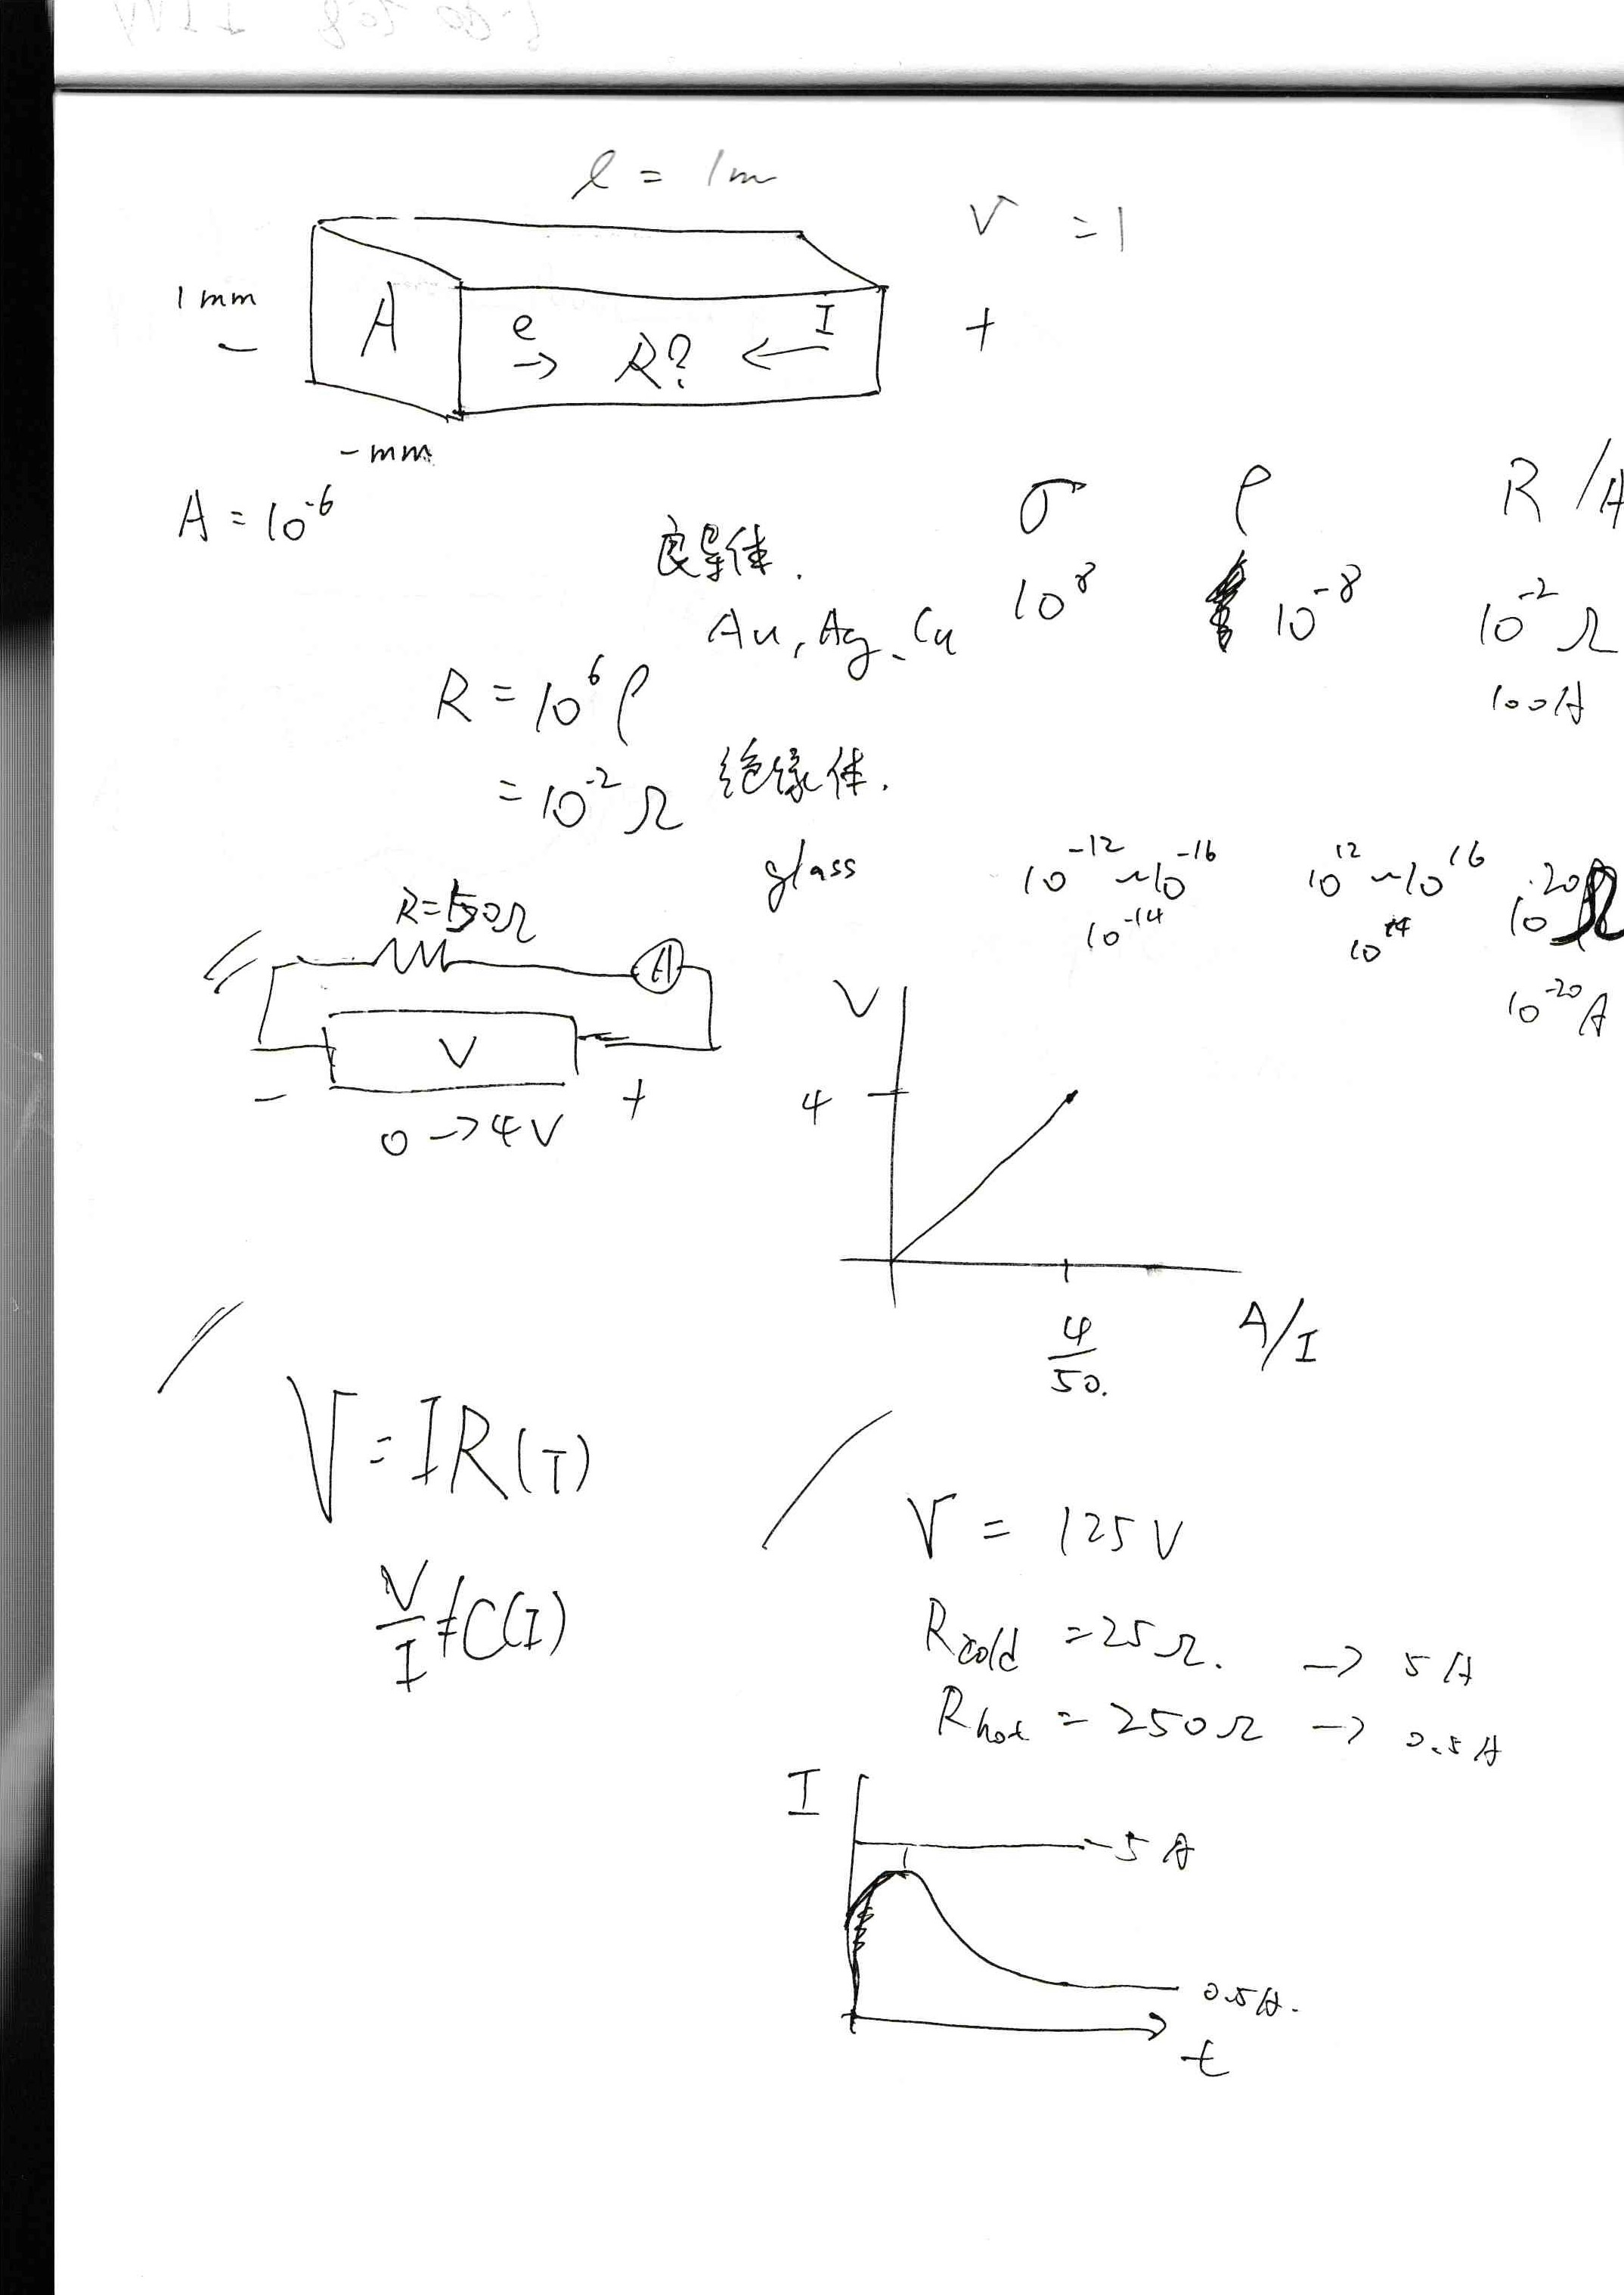 l = 1m
V = 1
1mm
−
A
e
→
R?
←
I
+
-mm
A = 10^-6
σ
ρ
R /A
良导体.
Au, Ag, Cu
10^8
10^-8
10^-2 Ω
100A
R = 10^6 ρ
= 10^-2 Ω
绝缘体.
glass
10^-12 ~ 10^-16
10^12 ~ 10^16
10^20 Ω
10^-14
10^14
10^-20 A
R=50Ω
A
V
−
+
0 → 4V
V
4
4/50.
A/I
V = IR(T)
V/I ≠ C(I)
V = 125V
R cold = 25Ω. → 5A
R hot = 250Ω → 0.5A
I
5A
0.5A.
t